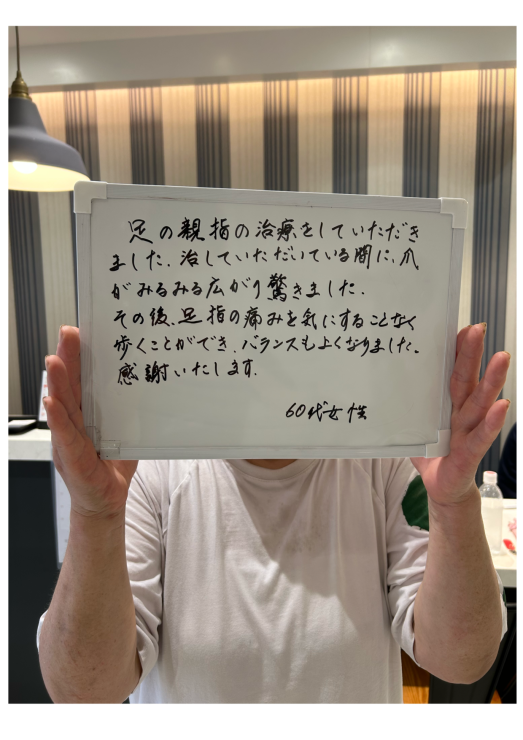 足の親指の治療をしていただき
ました。治していただいている間に、爪
がみるみる広がり驚きました。
その後、足指の痛みを気にすることなく
歩くことができ、バランスもよくなりました。
感謝いたします。
60代女性